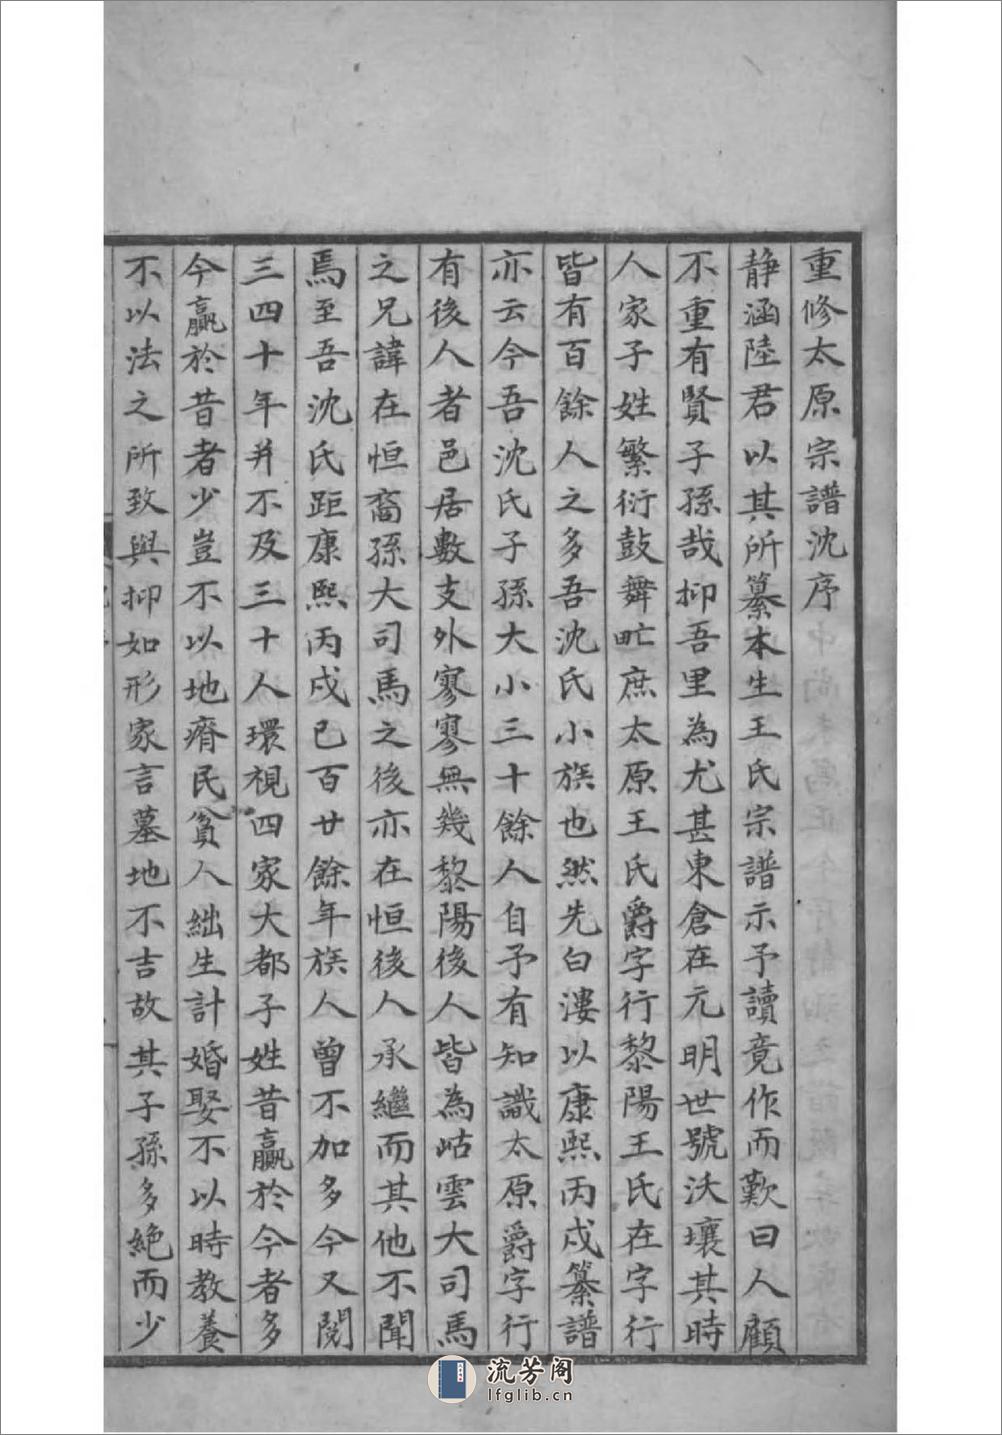 重修太原宗譜沈序
静涵陸君以其所纂本生王氏宗譜示予讀竟作而歎曰人顧
不重有賢子孫哉抑吾里為尤甚東倉在元明世號沃壤其時
人家子姓繁衍鼓舞甿庶太原王氏爵字行黎陽王氏在字行
皆有百餘人之多吾沈氏小族也然先白漊以康熙丙戍纂譜
亦云今吾沈氏子孫大小三十餘人自予有知識太原爵字行
有後人者邑居數支外寥寥無幾黎陽後人皆為岵雲大司馬
之兄諱在恒裔孫大司馬之後亦在恒後人承繼而其他不聞
焉至吾沈氏距康熙丙戍已百廿餘年族人曾不加多今又閱
三四十年并不及三十人環視四家大都子姓昔贏於今者多
今贏於昔者少豈不以地瘠民貧人絀生計婚娶不以時教養
不以法之所致與抑如形家言墓地不吉故其子孫多絕而少
流芳阁
lfglib.cn